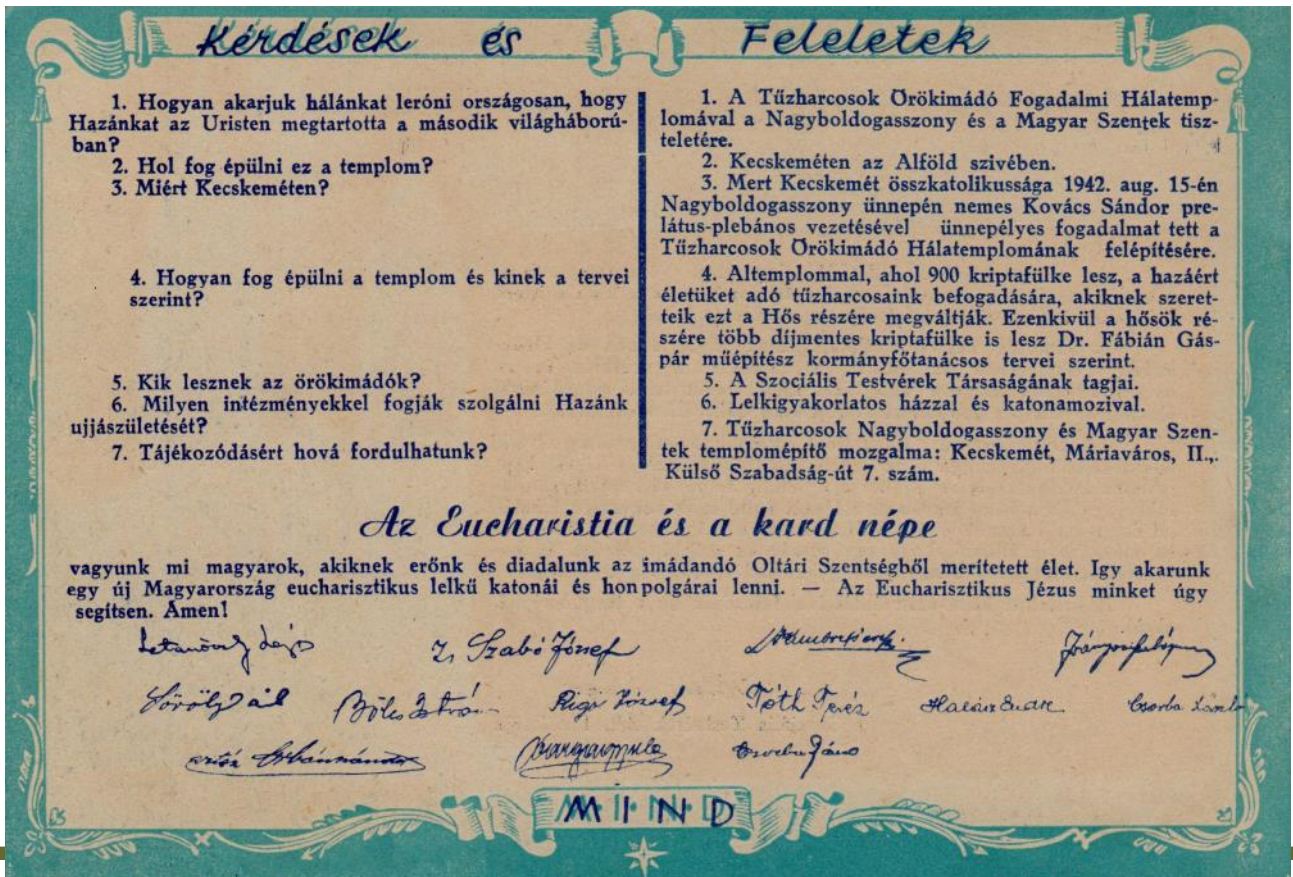 Kérdések és Feleletek
1. Hogyan akarjuk hálánkat leróni országosan, hogy
Hazánkat az Uristen megtartotta a második világhború-
ban?
2. Hol fog épülni ez a templom?
3. Miért Kecskeméten?
4. Hogyan fog épülni a templom és kinek a tervei
szerint?
5. Kik lesznek az örökimádók?
6. Milyen intézményekkel fogják szolgálni Hazánk
ujjászületését?
7. Tájékozódásért hová fordulhatunk?
1. A Tűzharcosok Örökimádó Fogadalmi Hálatemp-
lomával a Nagyboldogasszony és a Magyar Szentek tisz-
teletére.
2. Kecskeméten az Alföld szivében.
3. Mert Kecskemét összkatolikussága 1942. aug. 15-én
Nagyboldogasszony ünnepén nemes Kovács Sándor pre-
látus-plebános vezetésével ünnepélyes fogadalmat tett a
Tűzharcosok Örökimádó Hálatemplomának felépítésére.
4. Altemplommal, ahol 900 kriptafülke lesz, a hazáért
életüket adó tűzharcosaink befogadására, akiknek szeret-
teik ezt a Hős részére megváltják. Ezenkivül a hősök ré-
szére több díjmentes kriptafülke is lesz Dr. Fábián Gás-
pár műépítész kormányfőtanácsos tervei szerint.
5. A Szociális Testvérek Társaságának tagjai.
6. Lelkigyakorlatos házzal és katonamozival.
7. Tűzharcosok Nagyboldogasszony és Magyar Szen-
tek templomépítő mozgalma: Kecskemét, Máriaváros, II.,.
Külső Szabadság-út 7. szám.
Az Eucharistia és a kard népe
vagyunk mi magyarok, akiknek erőnk és diadalunk az imádandó Oltári Szentségből merítetett élet. Igy akarunk
egy új Magyarország eucharisztikus lelkű katonái és honpolgárai lenni. — Az Eucharisztikus Jézus minket úgy
segítsen. Amen!
Szabó József
Bölcs István Rigó József Tóth Teréz Csorba László
Csorba János
MIND